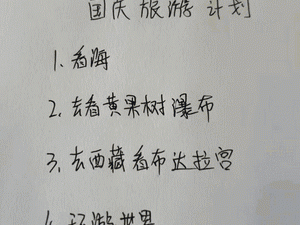 国庆旅游计划
1.看海
2.去看黄果树瀑布
3.去西藏看布达拉宫
4.环游世界